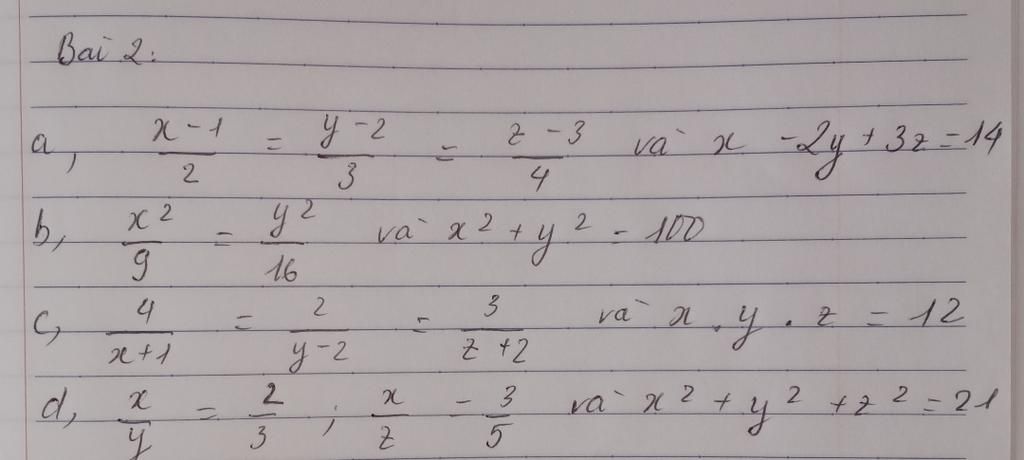 Bai 2:
a, x - 1 / 2 = y - 2 / 3 = z - 3 / 4 và x - 2y + 3z = 14
b, x² / 9 = y² / 16 và x² + y² = 100
c, 4 / x+1 = 2 / y-2 = 3 / z+2 và x . y . z = 12
d, x / y = 2 / 3 ; x / z - 3 / 5 và x² + y² + z² = 21